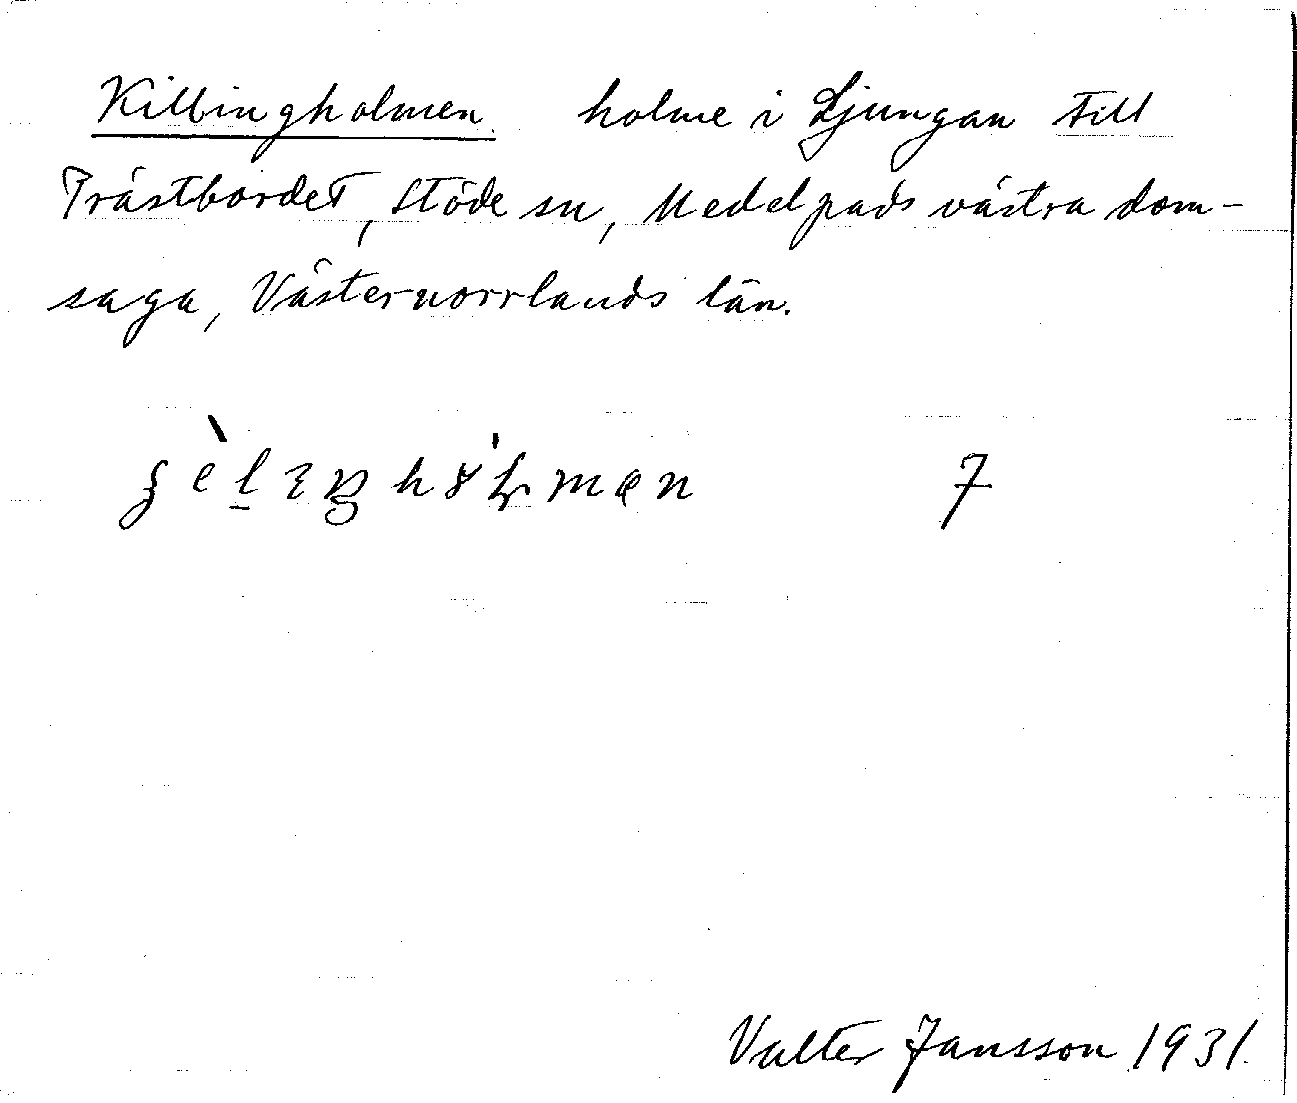 Killingholmen. holme i Ljungan till
Prästbordet, Stöde sn, Medelpads västra dom-
saga, Västernorrlands län.
7
Valter Jansson 1931.